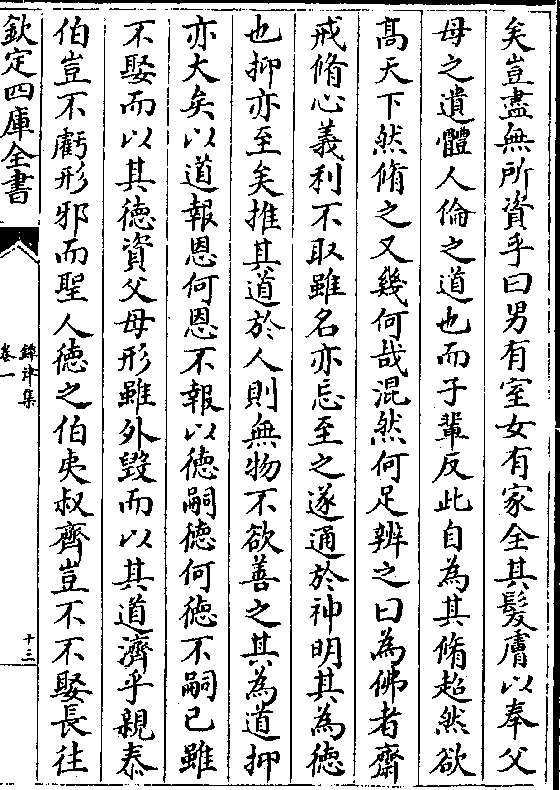 矣豈盡無所資乎曰男有室女有家全其髮膚以奉父
母之遺體人倫之道也而子輩反此自為其脩超然欲
髙天下然脩之又幾何哉混然何足辨之曰為佛者齋
戒脩心義利不取雖名亦忘至之遂通於神明其為徳
也抑亦至矣推其道於人則無物不欲善之其為道抑
亦大矣以道報恩何恩不報以徳嗣徳何徳不嗣已雖
不娶而以其徳資父母形雖外毀而以其道濟乎親泰
伯豈不虧形邪而聖人徳之伯夷叔齊豈不不娶長往
欽定四庫全書
鐔津集
卷一
十三